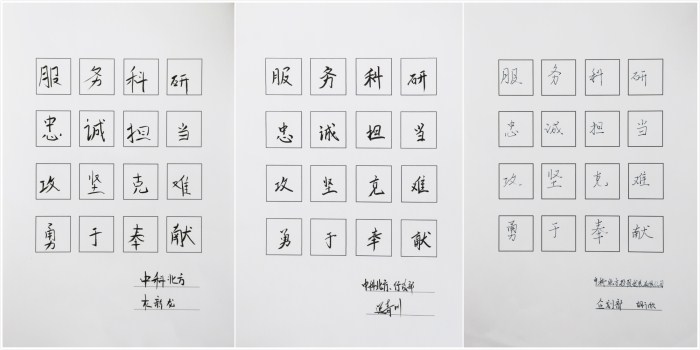 服务科研
忠诚担当
攻坚克难
勇于奉献
中科北方
服务科研
忠诚担当
攻坚克难
勇于奉献
中科北方行政部
服务科研
忠诚担当
攻坚克难
勇于奉献